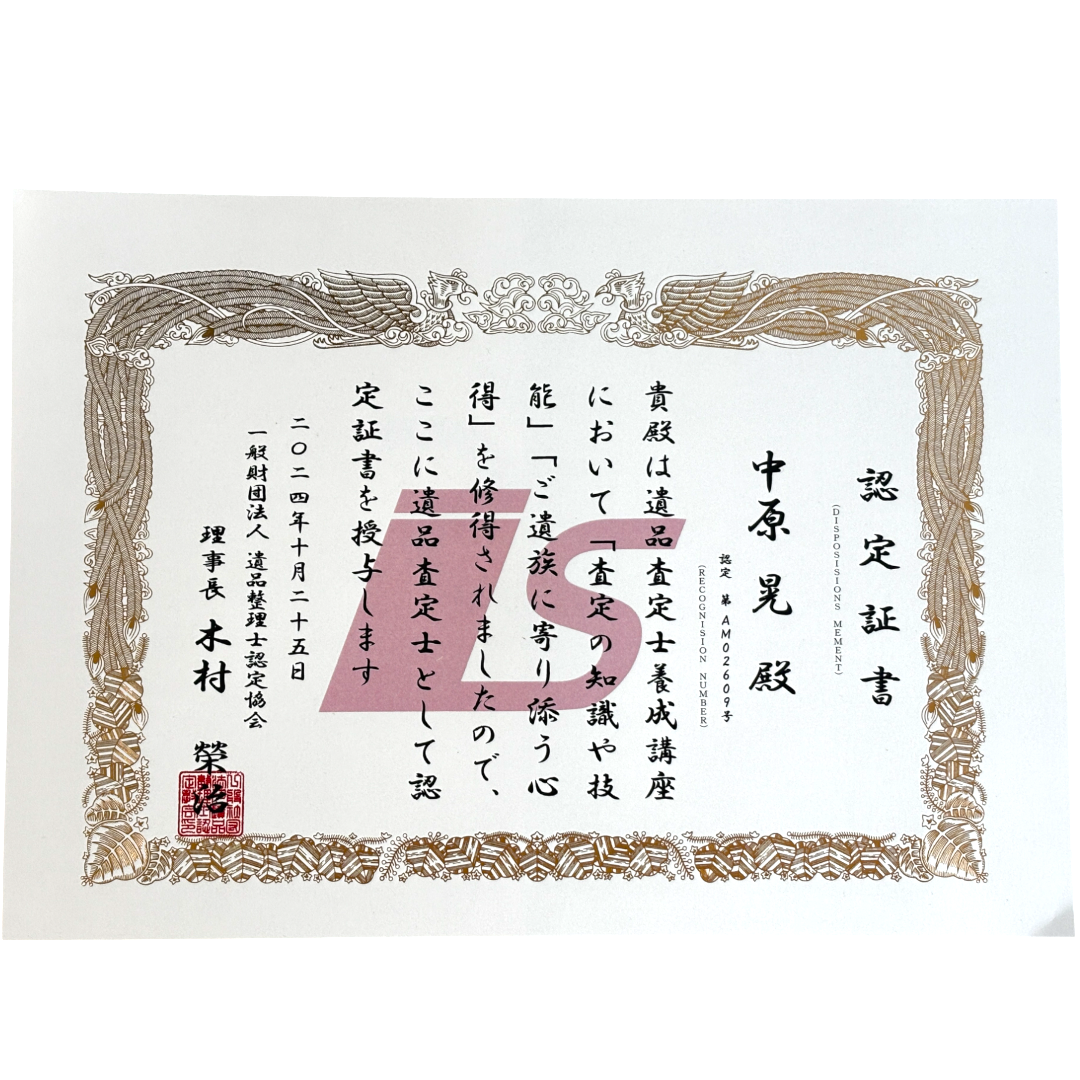 認定証書
(DISPOSISIONS MEMENT)
中原 晃 殿
認定 第 AM02609号
(RECOGNISION NUMBER)
貴殿は遺品査定士養成講座
において「査定の知識や技
能」「ご遺族に寄り添う心
得」を修得されましたので、
ここに遺品査定士として認
定証書を授与します
二〇二四年十月二十五日
一般財団法人 遺品整理士認定協会
理事長 木村 榮治
is